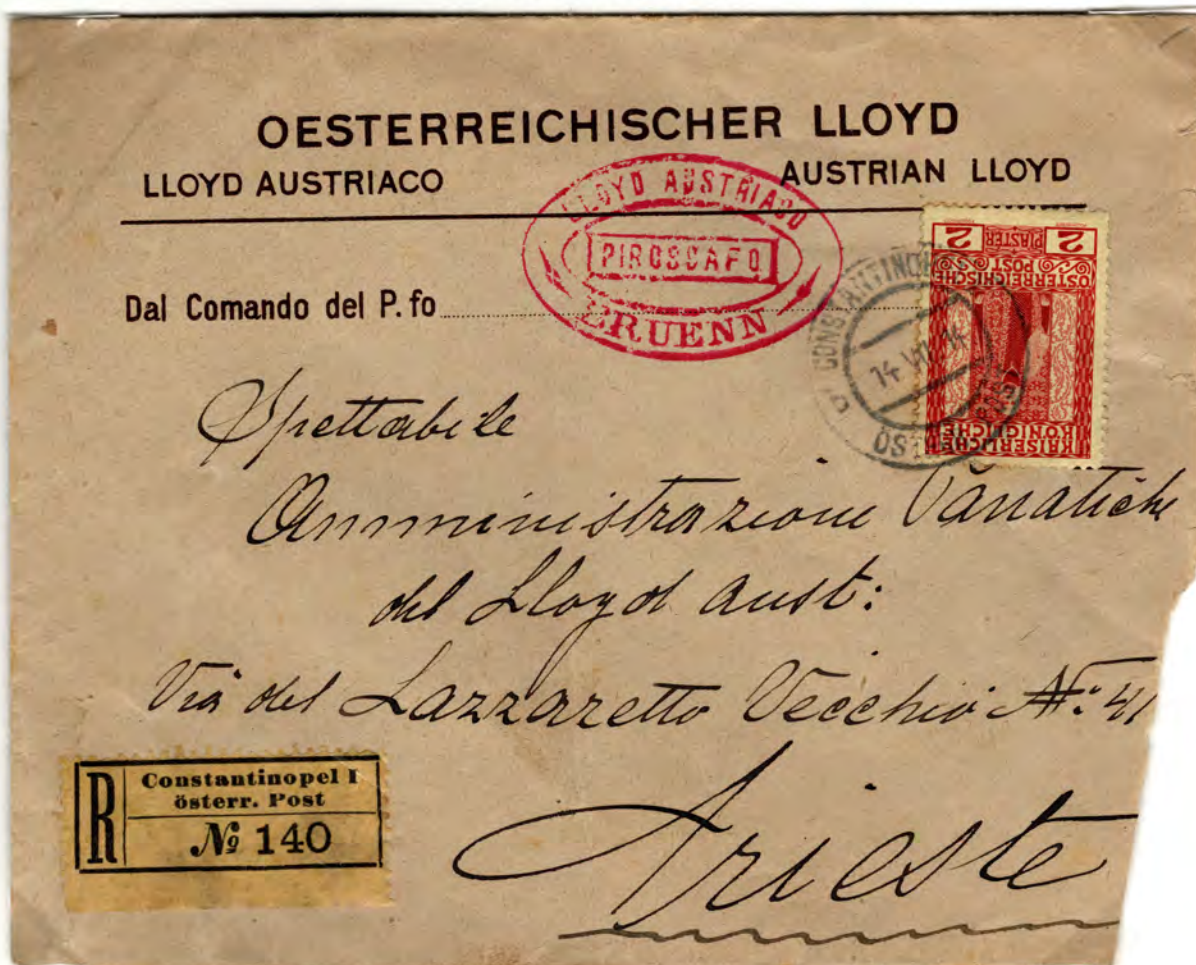 OESTERREICHISCHER LLOYD
LLOYD AUSTRIACO AUSTRIAN LLOYD
LLOYD AUSTRIACO
PIROSCAFO
BRUENN
Dal Comando del P.fo
2 PIASTER 2
ÖSTERREICHISCHE POST
KAISERLICHE KÖNIGLICHE
14 VII 14
Spettabile
Amministrazione Panatiche
del Lloyd Aust:
Via del Lazzaretto Vecchio No: 41
Trieste
R
Constantinopel I
österr. Post
№ 140